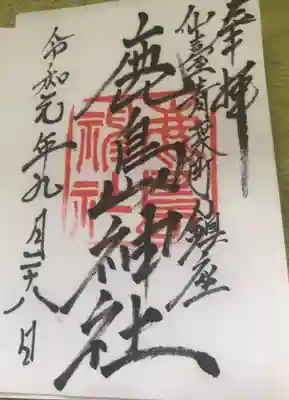 奉拝
仙臺青葉町鎮座
鹿島神社
令和元年九月二十八日